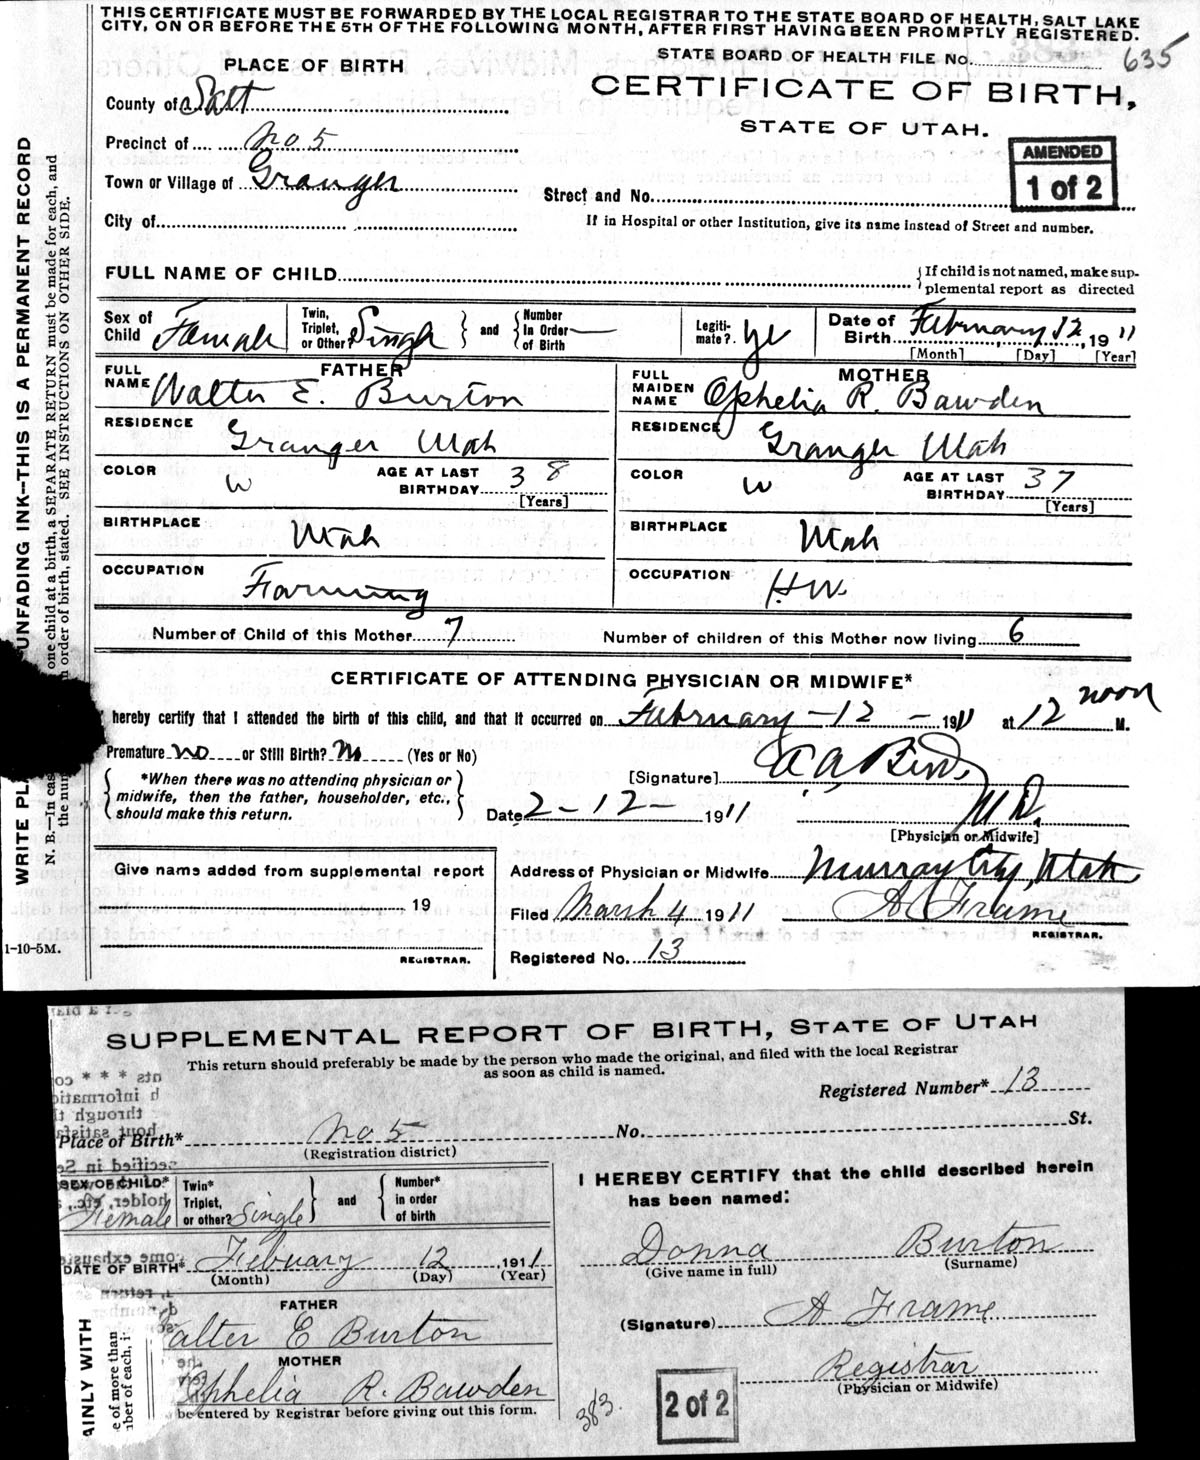 THIS CERTIFICATE MUST BE FORWARDED BY THE LOCAL REGISTRAR TO THE STATE BOARD OF HEALTH, SALT LAKE
CITY, ON OR BEFORE THE 5TH OF THE FOLLOWING MONTH, AFTER FIRST HAVING BEEN PROMPTLY REGISTERED.
STATE BOARD OF HEALTH FILE No. 635
PLACE OF BIRTH
CERTIFICATE OF BIRTH,
STATE OF UTAH.
AMENDED
1 of 2
County of Salt
Precinct of No 5
Town or Village of Granger
Street and No.
City of
If in Hospital or other Institution, give its name instead of Street and number.
FULL NAME OF CHILD
{If child is not named, make sup-
plemental report as directed
Sex of Child Female
Twin, Triplet, or Other? Single } and { Number In Order of Birth —
Legiti-mate? Ye
Date of Birth February 12, 1911
[Month] [Day] [Year]
FATHER
FULL NAME Walter E. Burton
MOTHER
FULL MAIDEN NAME Ophelia R. Bawden
RESIDENCE Granger Utah
RESIDENCE Granger Utah
COLOR W AGE AT LAST BIRTHDAY 38 [Years]
COLOR W AGE AT LAST BIRTHDAY 37 [Years]
BIRTHPLACE Utah
BIRTHPLACE Utah
OCCUPATION Farming
OCCUPATION H.W.
Number of Child of this Mother 7
Number of children of this Mother now living 6
CERTIFICATE OF ATTENDING PHYSICIAN OR MIDWIFE*
hereby certify that I attended the birth of this child, and that it occurred on February - 12 - 1911 at 12 noon M.
Premature No or Still Birth? No (Yes or No)
{ *When there was no attending physician or
midwife, then the father, householder, etc.,
should make this return. }
[Signature] M.D.
Date 2-12- 1911
[Physician or Midwife]
Give name added from supplemental report
19
REGISTRAR.
Address of Physician or Midwife Murray City, Utah
Filed March 4 1911 A Frame
REGISTRAR.
Registered No. 13
1-10-5M.
UNFADING INK—THIS IS A PERMANENT RECORD
WRITE PLA
N. B.—In cas one child at a birth, a SEPARATE RETURN must be made for each, and
the num order of birth, stated. SEE INSTRUCTIONS ON OTHER SIDE.
SUPPLEMENTAL REPORT OF BIRTH, STATE OF UTAH
This return should preferably be made by the person who made the original, and filed with the local Registrar
as soon as child is named.
Registered Number* 13
Place of Birth* No 5 No. St.
(Registration district)
SEX OF CHILD* Female
Twin* Triplet, or other? Single } and { Number* in order of birth
DATE OF BIRTH* Febuary 12, 1911
(Month) (Day) (Year)
FATHER
alter E Burton
MOTHER
Ophelia R. Bawden
be entered by Registrar before giving out this form.
I HEREBY CERTIFY that the child described herein
has been named:
Donna Burton
(Give name in full) (Surname)
(Signature) A Frame
Registrar
(Physician or Midwife)
383.
2 of 2
AINLY WITH
e of more than
ber of each, i